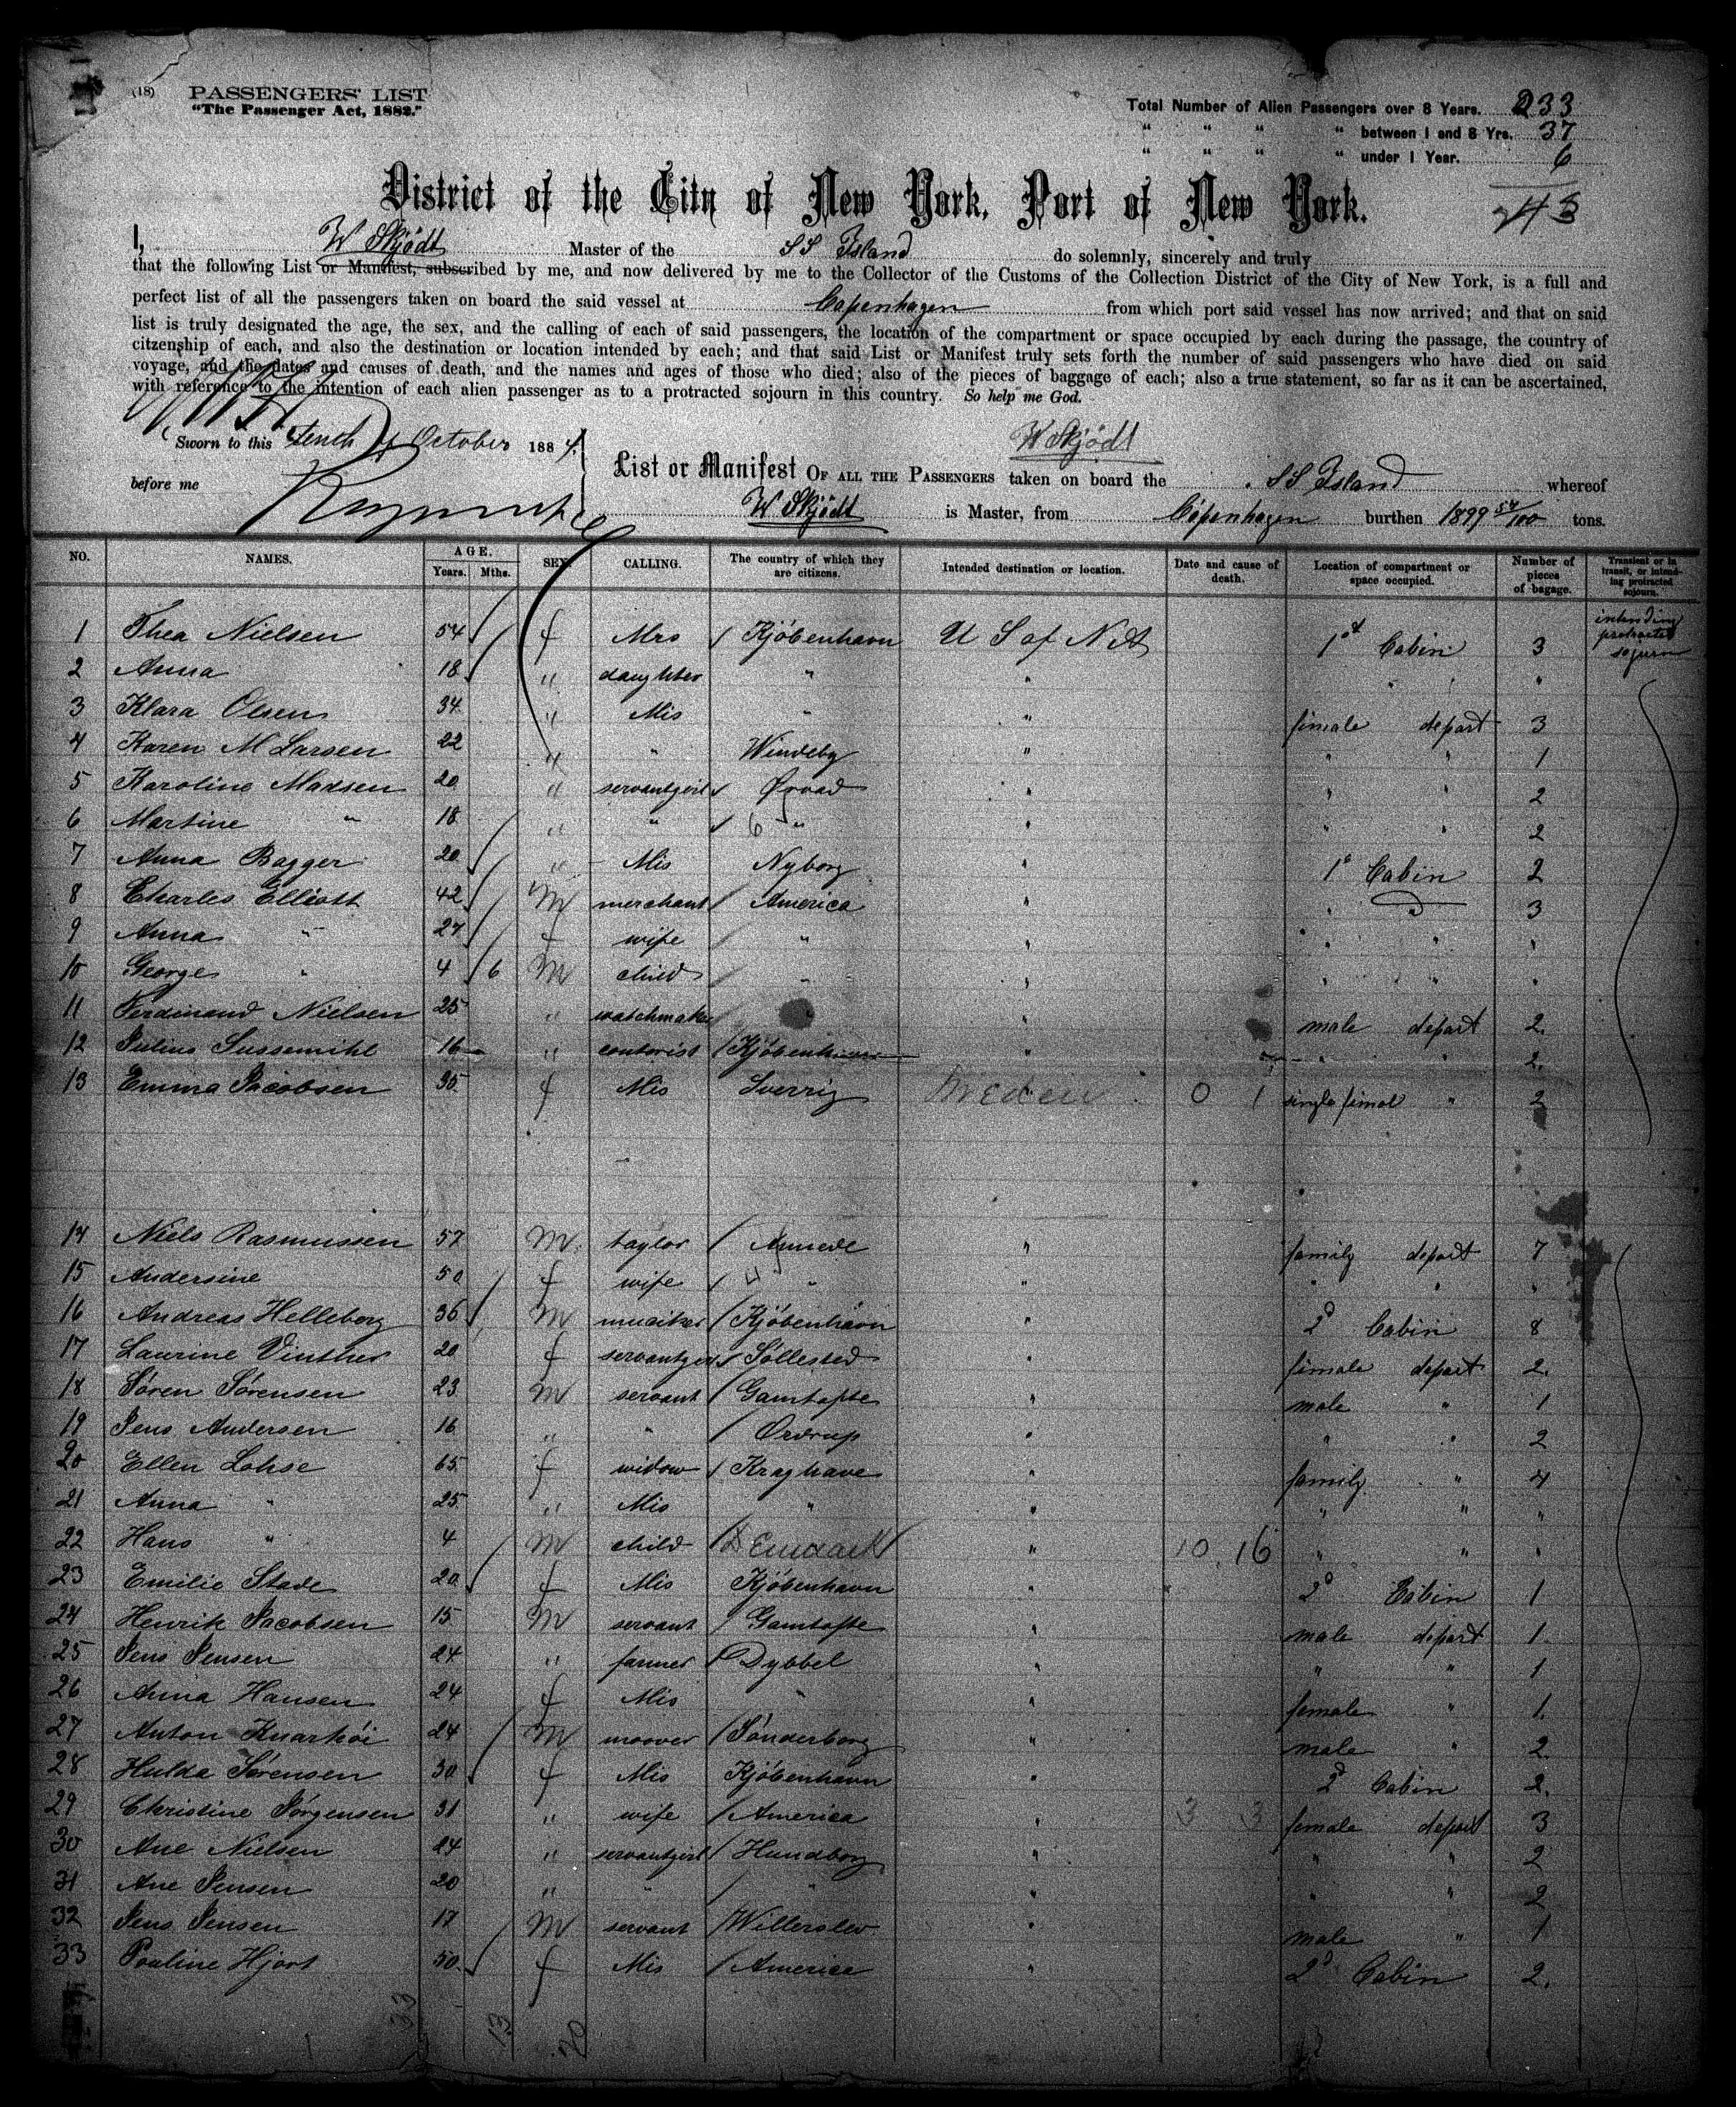 (18) PASSENGERS' LIST
"The Passenger Act, 1882."
Total Number of Alien Passengers over 8 Years. 233
" " " " between 1 and 8 Yrs. 37
" " " " under 1 Year. 6
District of the City of New York, Port of New York.
I, W Skjödt Master of the SS Island do solemnly, sincerely and truly
that the following List or Manifest, subscribed by me, and now delivered by me to the Collector of the Customs of the Collection District of the City of New York, is a full and
perfect list of all the passengers taken on board the said vessel at Copenhagen from which port said vessel has now arrived; and that on said
list is truly designated the age, the sex, and the calling of each of said passengers, the location of the compartment or space occupied by each during the passage, the country of
citzenship of each, and also the destination or location intended by each; and that said List or Manifest truly sets forth the number of said passengers who have died on said
voyage, and the dates and causes of death, and the names and ages of those who died; also of the pieces of baggage of each; also a true statement, so far as it can be ascertained,
with reference to the intention of each alien passenger as to a protracted sojourn in this country. So help me God.
Sworn to this Tenth of October 1884. W Skjödt
before me
List or Manifest OF ALL THE PASSENGERS taken on board the SS Island whereof
W Skjödt is Master, from Copenhagen burthen 1899 54/100 tons.
NO. NAMES. AGE. Years. Mths. SEX. CALLING. The country of which they are citizens. Intended destination or location. Date and cause of death. Location of compartment or space occupied. Number of pieces of bagage. Transient or in transit, or intending protracted sojourn.
1 Thea Nielsen 54 f Mrs Kjöbenhavn U S of NA 1st Cabin 3 intending protracted sojurn
2 Anna 18 " daughter " " " " "
3 Klara Olsen 34 " Mis " " fimale depart 3
4 Karen M Larsen 22 " " Windeby " " " 1
5 Karoline Madsen 20 " servantgirl Ørvad " " " 2
6 Martine " 18 " " 6 " " " " 2
7 Anna Bagger 20 " Mis Nyborg " 1st Cabin 2
8 Charles Elliott 42 M merchant America " " 3
9 Anna " 27 f wife " " " " "
10 George " 4 6 M child " " " " "
11 Ferdinand Nielsen 25 " watchmaker " " male depart 2.
12 Julius Sussemihl 16 " contorist Kjöbenhavn " " " 2.
13 Emma Jacobsen 35 f Mis Sverrig Sweden 0 1 single fimal " 2
14 Niels Rasmussen 57 M taylor " family depart 7
15 Andersine 50 f wife 4 " " " " "
16 Andreas Helleborg 36 M musiker Kjöbenhavn " 2d Cabin 8
17 Laurine Vinther 20 f servantgirl Söllested " fimale depart 2.
18 Sören Sörensen 23 M servant Gamtofte " male " 1
19 Jens Andersen 16 " " Ordrup " " " 2
20 Ellen Lohse 65 f widow Kraghave " family " 4
21 Anna " 25 " Mis " " " " "
22 Hans " 4 M child Denmark " 10 16 " " "
23 Emilie Stade 20 f Mis Kjöbenhavn " 2d Cabin 1
24 Henrik Jacobsen 15 M servant Gamtofte " male depart 1.
25 Jens Jensen 24 " farmer Dybbel " " " 1
26 Anna Hansen 24 f Mis " " female " 1.
27 Anton Knarhöi 24 M moover Sönderborg " male " 2
28 Hulda Sörensen 30 f Mis Kjöbenhavn " 2d Cabin 2.
29 Christine Jörgensen 31 " wife America " 3 3 female depart 3
30 Ane Nielsen 24 " servantgirl Hundborg " " " 2
31 Ane Jensen 20 " " " " " " 2
32 Jens Jensen 17 M servant Willerslev " male " 1
33 Pouline Hjort 50 f Mis America " 2d Cabin 2.
33 13 20